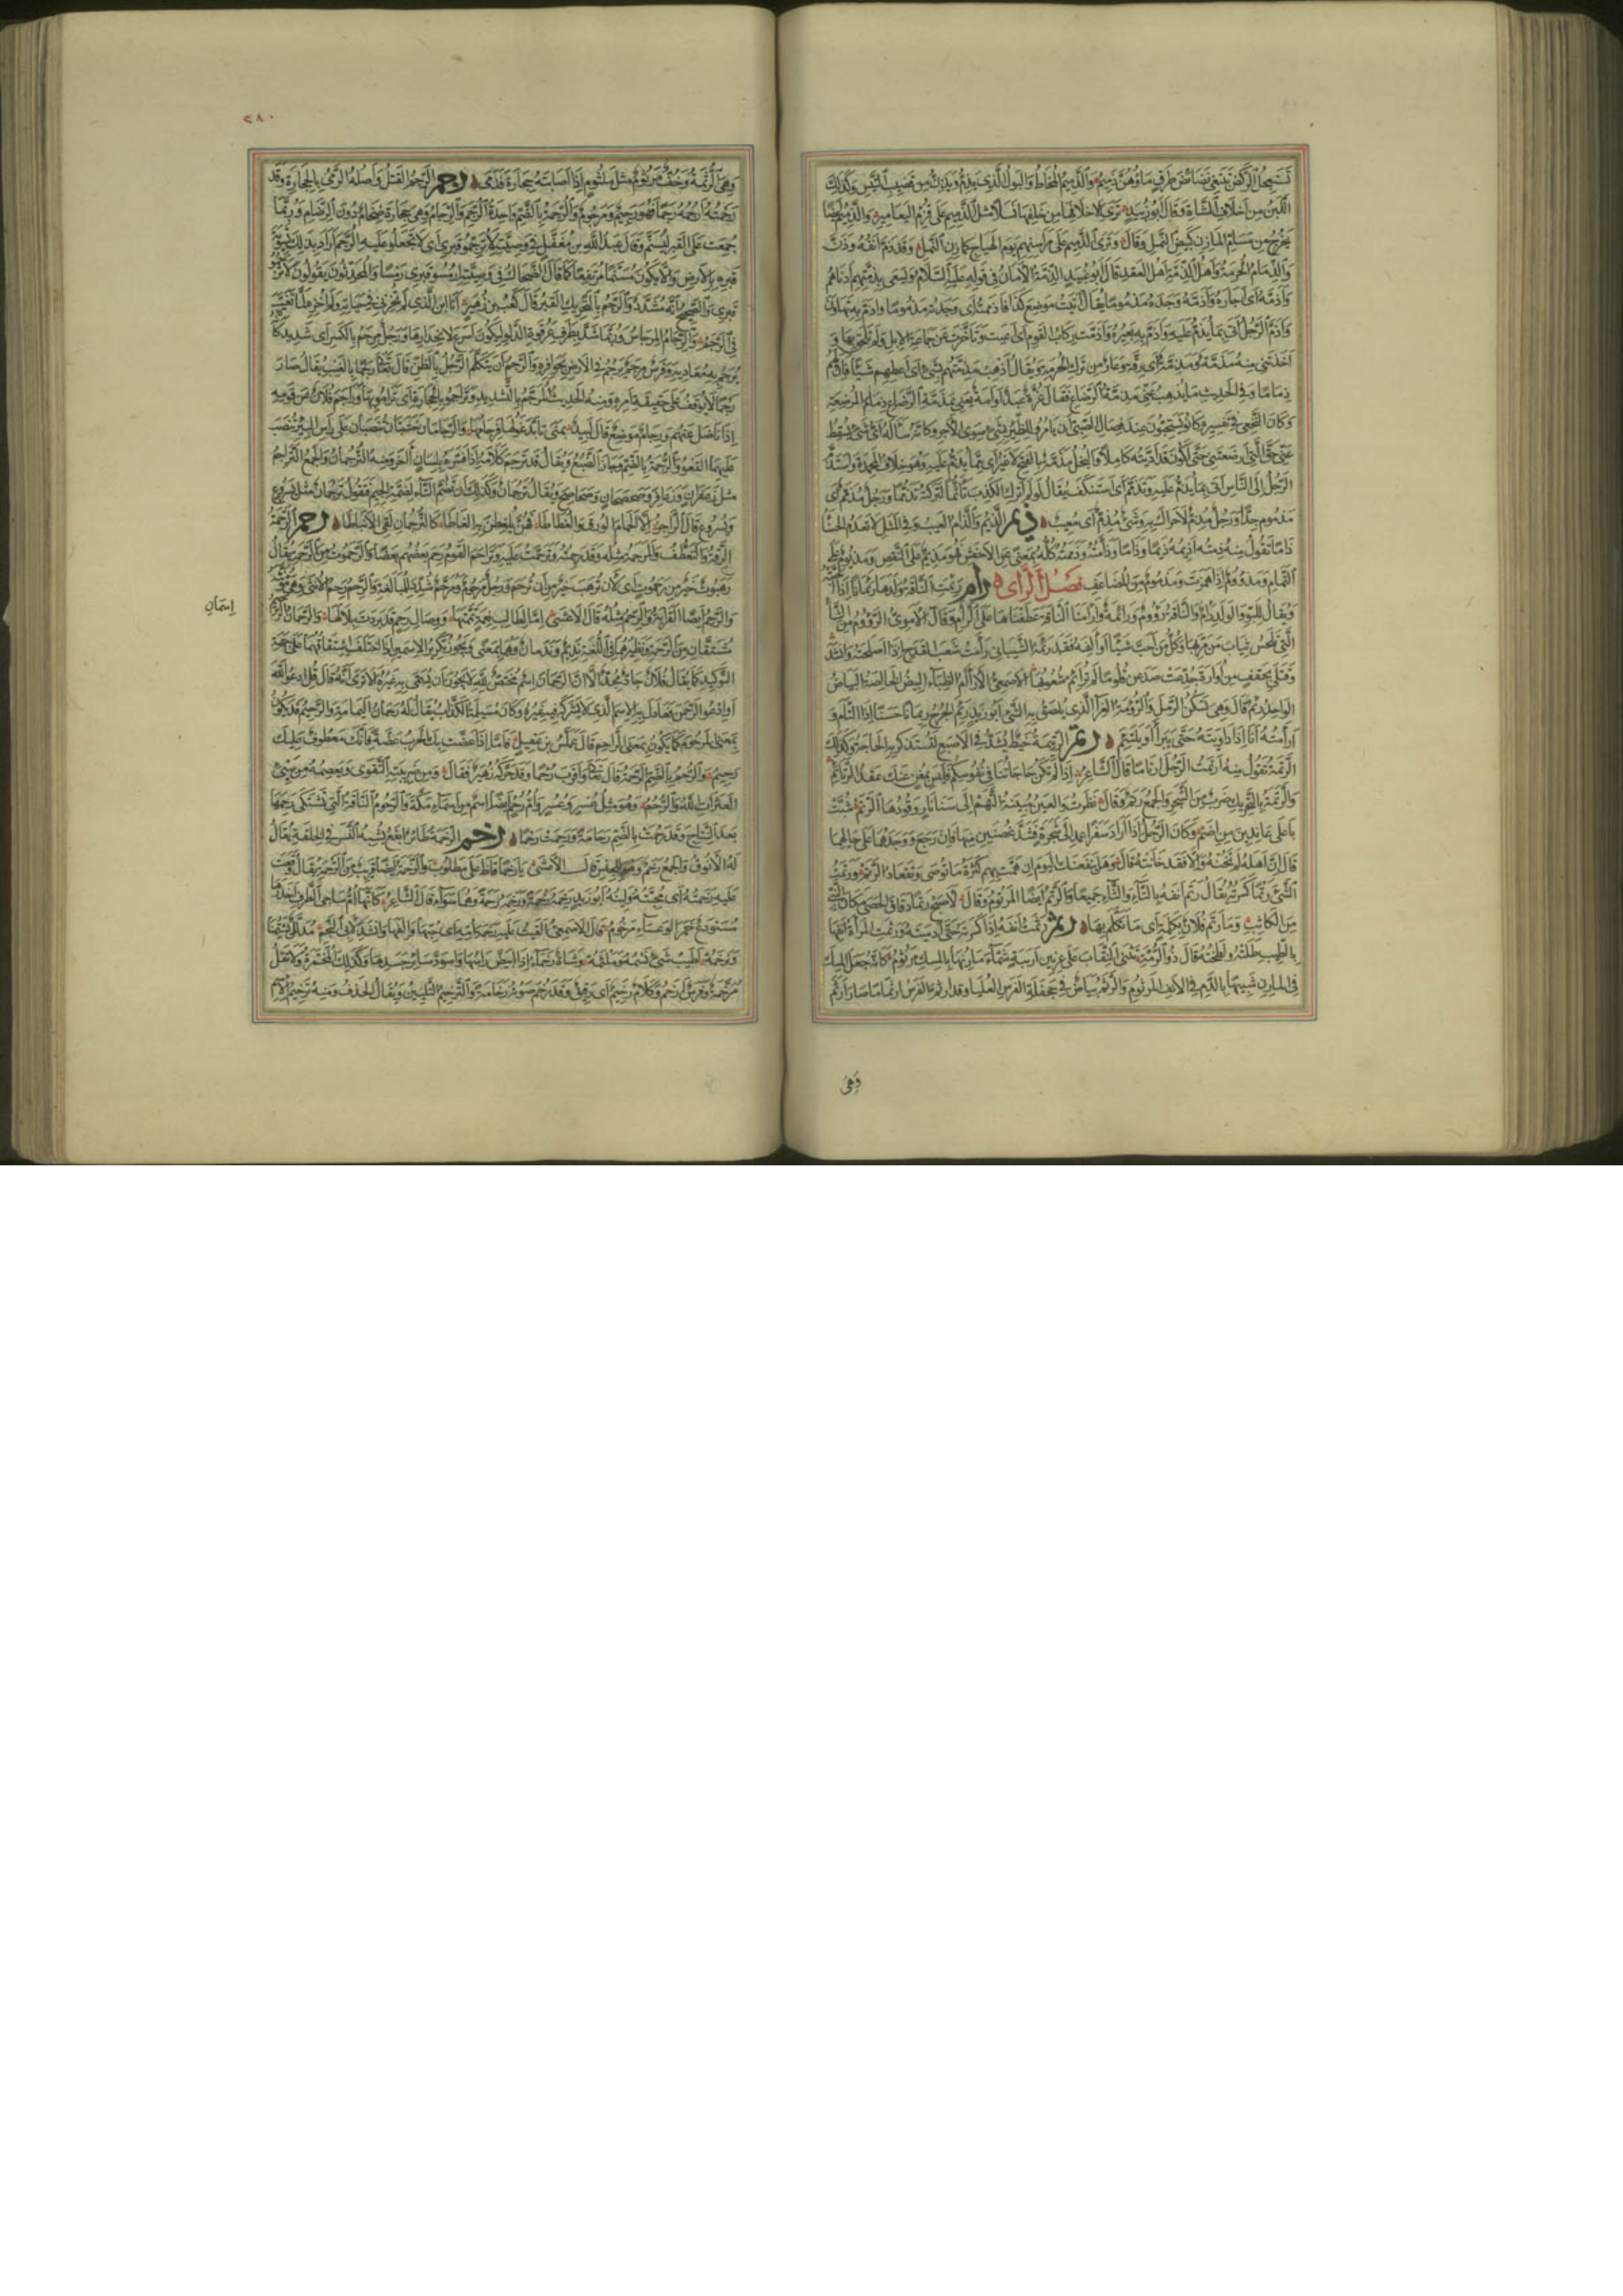 تَسَبَّحُ الرَّكضَ بَضَائِضَ طَرفٍ مَاؤُهُنَّ ذَمِيمُ وَالذَّمِيمُ المُخَاطُ وَالبَولُ الَّذِى يَذِمُّ وَيَذِنُّ مِن قَضِيبِ التَّيسِ وَكَذٰلِكَ
اللَّبَنُ مِن اَخلَافِ الشَّاةِ وَقَالَ اَبُو زُبَيدٍ تَرَى لِاَخلَافِهَا مِن خَلفِهَا نَسَلًا مثلَ الذَّمِيمِ عَلَى قُزمِ اليَعَامِيرِ وَالذَّمِيمُ اَيضًا
يَخرُجُ مِن مَسَامِّ المَارِنِ كَبَيضِ النَّملِ وَقَالَ وَتَرَى الذَّمِيمَ عَلَى مَرَاسِنِهِم يَومَ الهِيَاجِ كَمَازِنِ النَّملِ وَقَد ذَمَّ اَنفُهُ وَذَنَّ
وَالذِّمَامُ الحُرمَةُ وَاَهلُ الذِّمَّةِ اَهلُ العَقدِ قَالَ اَبُو عُبَيدٍ الذِّمَّةُ الاَمَانُ فِى قَولِهِ عَلَيهِ السَّلَامُ وَيَسعَى بِذِمَّتِهِم اَدنَاهُم
وَاَذَمَّهُ اَى اَجَارَهُ وَاَذَمَّهُ وَجَدَهُ مَذمُومًا يُقَالُ اَتَيتُ مَوضِعَ كَذَا فَاَذمَمتُهُ اَى وَجَدتُهُ مَذمُومًا وَاَذَمَّ بِهِ تَهَاوَنَ
وَاَذَمَّ الرَّجُلُ اَتَى بِمَا يُذَمُّ عَلَيهِ وَاَذَمَّ بِهِ بَعِيرُهُ وَاَذَمَّت رِكَابُ القَومِ اَى اَعيَت وَتَاَخَّرَت عَن جَمَاعَةِ الاِبِلِ وَلَم تَلحَق بِهَا وَ
اَخَذَتنِى مِنهُ مَذَمَّةٌ وَمَذِمَّةٌ اَى رِقَّةٌ وَعَارٌ مِن تَركِ الحُرمَةِ وَيُقَالُ اَذهِب مَذَمَّتَهُم بِشَىءٍ اَى اَعطِهِم شَيئًا فَاِنَّ لَهُم
ذِمَامًا وَفِى الحَدِيثِ مَا يُذهِبُ عَنِّى مَذَمَّةَ الرَّضَاعِ فَقَالَ غُرَّةٌ عَبدٌ اَو اَمَةٌ يَعنِى بِمَذَمَّةِ الرَّضَاعِ ذِمَامَ المُرضِعَةِ
وَكَانَ النَّخَعِى فِى تَفسِيرِهِ كَانُوا يَستَحِبُّونَ عِندَ فِصَالِ الصَّبِىِّ اَن يَامُرُوا لِلظِّئرِ بِشَىءٍ سِوَى الاَجرِ وَكَاَنَّهُ سَاَلَهُ اَىُّ شَىءٍ يُسقِطُ
عَنِّى حَقَّ الَّتِى اَرضَعَتنِى حَتَّى اَكُونَ قَد اَدَّيتُهُ كَامِلًا وَالبُخلُ مَذَمَّةٌ بِالفَتحِ لَا غَيرُ اَى مِمَّا يُذَمُّ عَلَيهِ وَهُوَ خِلَافُ المَحمَدَةِ وَاستَذَمَّ
الرَّجُلُ اِلَى النَّاسِ اَتَى بِمَا يُذَمُّ عَلَيهِ وَتَذَمَّمَ اَى استَنكَفَ يُقَالُ لَو لَم اَترُكِ الكَذِبَ تَاَثُّمًا لَتَرَكتُهُ تَذَمُّمًا وَرَجُلٌ مُذَمَّمٌ اَى
مَذمُومٌ جِدًّا وَرَجُلٌ مُذِمٌّ لَا حَرَاكَ بِهِ وَشَىءٌ مُذِمٌّ اَى مَعِيبٌ ذيم الذَّيمُ وَالذَّامُ العَيبُ وَفِى المَثَلِ لَا تَعدَمُ الحَسنَاءُ
ذَامًا تَقُولُ مِنهُ ذِمتُهُ اَذِيمُهُ ذَيمًا وَذَامًا وَذَاَمتُهُ وَذَمَمتُهُ كُلُّهُ بِمَعنًى عَنِ الاَخفَشِ فَهُوَ مَذِيمٌ عَلَى النَّقصِ وَمَذيُومٌ عَلَى
التَّمَامِ وَمَذؤُومٌ اِذَا هَمَزتَ وَمَذمُومٌ مِنَ المُضَاعَفِ فَصلُ الرَّاى رأم رَئِمَتِ النَّاقَةُ وَلَدَهَا رِئمَانًا اِذَا اَحَبَّتهُ
وَيُقَالُ لِلبَوِّ وَالوَلَدِ رَأمٌ وَالنَّاقَةُ رَؤُومٌ وَرَائِمَةٌ وَاَرأَمنَا النَّاقَةَ عَطَفنَاهَا عَلَى الرَّأمِ وَقَالَ الاُمَوِىُّ الرَّؤُومُ مِنَ الشَّاءِ
الَّتِى تَلحَسُ ثِيَابَ مَن مَرَّ بِهَا وَكُلُّ مَن اَحَبَّ شَيئًا وَاَلِفَهُ فَقَد رَئِمَهُ الشَّيبَانِى رَأَمتُ شَعبَ القَدَحِ اِذَا اَصلَحتَهُ وَاَنشَدَ
وَقَتلَى بِحِقفٍ مِن اُوَارَةَ جُدِّعَت صَدَعنَ قُلُوبًا لَم تُرأَم شُعُوبُهَا الاَصمَعِىُّ الاَرآمُ الظِّبَاءُ البِيضُ الخَالِصَةُ البَيَاضِ
الوَاحِدُ رِئمٌ قَالَ وَهِىَ تَسكُنُ الرَّملَ وَالرُّؤمَةُ الغِرَاءُ الَّذِى يُلصَقُ بِهِ الشَّىءُ اَبُو زَيدٍ رَئِمَ الجُرحُ رِئمَانًا حَسَنًا اِذَا التَأَمَ وَ
اَرأَمتُهُ اَنَا اِذَا دَاوَيتَهُ حَتَّى يَبرَأَ اَو يَلتَئِمَ رتم الرَّتِيمَةُ خَيطٌ يُشَدُّ فِى الاِصبَعِ لِتُستَذكَرَ بِهِ الحَاجَةُ وَكَذٰلِكَ
الرَّتَمَةُ تَقُولُ مِنهُ اَرتَمتُ الرَّجُلَ اِرتَامًا قَالَ الشَّاعِرُ اِذَا لَم تَكُن حَاجَاتُنَا فِى نُفُوسِكُم فَلَيسَ بِمُغنٍ عَنكَ عَقدُ الرَّتَائِمِ
وَالرَّتَمَةُ بِالتَّحرِيكِ ضَربٌ مِنَ الشَّجَرِ وَالجَمعُ رَتَمٌ وَقَالَ نَظَرتُ وَالعَينُ مُبِينَةُ التَّهَم اِلَى سَنَا نَارٍ وَقُودُهَا الرَّتَم شُبَّت
بِاَعلَى عَانِدَينِ مِن اِضَم وَكَانَ الرَّجُلُ اِذَا اَرَادَ سَفَرًا عَمَدَ اِلَى شَجَرَةٍ فَشَدَّ غُصنَينِ مِنهَا فَاِن رَجَعَ وَوَجَدَهُمَا عَلَى حَالِهِمَا
قَالَ اِنَّ اَهلَهُ لَم تَخُنهُ وَاِلَّا فَقَد خَانَتهُ قَالَ وَهَل يَنفَعَنكَ اليَومَ اِن هَمَّت بِهِم كَثرَةُ مَا تُوصِى وَتَعقَادُ الرَّتَم وَرَتَمتُ
الشَّىءَ رَتمًا كَسَرتُهُ يُقَالُ رَتَمَ اَنفَهُ بِالتَّاءِ وَالثَّاءِ جَمِيعًا وَالرَّتمُ اَيضًا المَرتُومُ وَقَالَ لَاَصبَحَ رَتمًا دُقَاقَ الحَصَى مَكَانَ النَّبِىِّ
مِنَ الكَاثِبِ وَمَا رَتَمَ فُلَانٌ بِكَلِمَةٍ اَى مَا تَكَلَّمَ بِهَا رثم رَثَمتُ اَنفَهُ اِذَا كَسَرتَهُ حَتَّى اَدمَيتَهُ وَرَثَمَتِ المَرأَةُ اَنفَهَا
بِالطِّيبِ طَلَتهُ وَلَطَخَتهُ قَالَ ذُو الرُّمَّةِ تَثنِى النِّقَابَ عَلَى عِرنِينِ اَرنَبَةٍ شَمَّاءَ مَارِنُهَا بِالمِسكِ مَرثُومُ كَاَنَّهُ جَعَلَ المِسكَ
فِى المَارِنِ شَبِيهًا بِالدَّمِ فِى الاَنفِ المَرثُومِ وَالرَّثَمُ بَيَاضٌ فِى جَحفَلَةِ الفَرَسِ العُليَا وَقَد ارثَمَّ الفَرَسُ ارثِمَامًا صَارَ اَرثَمَ
وَهِىَ
٢٨٠
وَهِىَ الرُّثمَةُ وَخُفٌّ مَرثُومٌ مِثلُ مَلثُومٍ اِذَا اَصَابَتهُ حِجَارَةٌ فَدَمِىَ رجم الرَّجمُ القَتلُ وَاَصلُهُ الرَّمىُ بِالحِجَارَةِ وَقَد
رَجَمتُهُ اَرجُمُهُ رَجمًا فَهُوَ رَجِيمٌ وَمَرجُومٌ وَالرُّجمَةُ بِالضَّمِّ وَاحِدَةُ الرُّجَمِ وَالرِّجَامُ وَهِىَ حِجَارَةٌ ضِخَامٌ دُونَ الرِّضَامِ وَرُبَّمَا
جُمِعَت عَلَى القَبرِ لِيُسَنَّمَ وَقَالَ عَبدُ اللّٰهِ بنُ مُغَفَّلٍ فِى وَصِيَّتِهِ لَا تُرَجِّمُوا قَبرِى اَى لَا تَجعَلُوا عَلَيهِ الرُّجَمَ اَرَادَ بِذٰلِكَ تَسوِيَةَ
قَبرِهِ بِالاَرضِ وَاَلَّا يَكُونَ مُسَنَّمًا مُرتَفِعًا كَمَا قَالَ الضَّحَّاكُ فِى وَصِيَّتِهِ ارمُسُوا قَبرِى رَمسًا وَالمُحَدِّثُونَ يَقُولُونَ لَا تَرجُمُوا
قَبرِى وَالصَّحِيحُ اَنَّهُ مُشَدَّدٌ وَالرَّجَمُ بِالتَّحرِيكِ القَبرُ قَالَ كَعبُ بنُ زُهَيرٍ اَنَا ابنُ الَّذِى لَم يُخزِنِى فِى حَيَاتِهِ وَلَم اُخزِهِ لَمَّا تَغَيَّبَ
فِى الرَّجَم وَالرِّجَامُ المِرجَاسُ وَرُبَّمَا شُدَّ بِطَرَفِ عَرقُوَةِ الدَّلوِ لِيَكُونَ اَسرَعَ لِانحِدَارِهَا وَرَجُلٌ مِرجَمٌ بِالكَسرِ اَى شَدِيدٌ كَاَنَّهُ
يُرجَمُ بِهِ مُعَادِيهِ وَفَرَسٌ مِرجَمٌ يَرجُمُ فِى الاَرضِ بِحَوَافِرِهِ وَالرَّجمُ اَن يَتَكَلَّمَ الرَّجُلُ بِالظَّنِّ قَالَ تَعَالَى رَجمًا بِالغَيبِ يُقَالُ صَارَ
رَجمًا لَا يُوقَفُ عَلَى حَقِيقَةِ اَمرِهِ وَمِنهُ الحَدِيثُ المُرَجَّمُ بِالتَّشدِيدِ وَتَرَاجَمُوا بِالحِجَارَةِ اَى تَرَامَوا بِهَا وَرَاجَمَ فُلَانٌ عَن قَومِهِ
اِذَا نَاضَلَ عَنهُم وَرِجَامٌ مَوضِعٌ قَالَ لَبِيدٌ بِمِنًى تَاَبَّدَ غَولُهَا فَرِجَامُهَا وَالرِّجَامَانِ خَشَبَتَانِ تُنصَبَانِ عَلَى رَأسِ البِئرِ يُنصَبُ
عَلَيهِمَا القَعوُ وَالرُّجمَةُ بِالضَّمِّ وَجَارُ الضَّبُعِ وَيُقَالُ قَد تَرجَمَ كَلَامَهُ اِذَا فَسَّرَهُ بِلِسَانٍ آخَرَ وَمِنهُ التَّرجُمَانُ وَالجَمعُ التَّرَاجِمُ
مِثلُ زَعفَرَانٍ وَزَعَافِرَ وَصَحصَحَانٍ وَصَحَاصِحَ وَيُقَالُ تَرجُمَانٌ وَلَكَ اَن تَضُمَّ التَّاءَ لِضَمَّةِ الجِيمِ فَتَقُولَ تُرجُمَانٌ مِثلُ يَسرُوعٍ
وَيُسرُوعٍ قَالَ الرَّاجِزُ اِلَّا الحَمَامَ الوُرقَ وَالغَطَاطَا فَهُنَّ يُلغِطنَ بِهِ اِلغَاطَا كَالتُّرجُمَانِ لَقِىَ الاَنبَاطَا رحم الرَّحمَةُ
الرِّقَّةُ وَالتَّعَطُّفُ وَالمَرحَمَةُ مِثلُهُ وَقَد رَحِمتُهُ وَتَرَحَّمتُ عَلَيهِ وَتَرَاحَمَ القَومُ رَحِمَ بَعضُهُم بَعضًا وَالرَّحَمُوتُ مِنَ الرَّحمَةِ يُقَالُ
رَهَبُوتٌ خَيرٌ مِن رَحَمُوتٍ اَى لَاَن تُرهَبَ خَيرٌ مِن اَن تُرحَمَ وَرَجُلٌ مَرحُومٌ وَمُرَحَّمٌ شُدِّدَ لِلمُبَالَغَةِ وَالرَّحِمُ رَحِمُ الاُنثَى وَهِىَ مُؤَنَّثَةٌ
وَالرَّحِمُ اَيضًا القَرَابَةُ وَالرِّحمُ مِثلُهُ قَالَ الاَعشَى اِمَّا لِطَالِبِ نِعمَةٍ تَمَّمتَهَا وَوِصَالِ رِحمٍ قَد بَرَدتَ بِلَالَهَا وَالرَّحمَانُ الرَّحِيمُ
اِسمَانِ
مُشتَقَّانِ مِنَ الرَّحمَةِ وَنَظِيرُهُمَا فِى اللُّغَةِ نَدِيمٌ وَنَدمَانُ وَهُمَا بِمَعنًى وَيَجُوزُ تَكرِيرُ الاِسمَينِ اِذَا اختَلَفَ اشتِقَاقُهُمَا عَلَى جِهَةِ
التَّوكِيدِ كَمَا يُقَالُ فُلَانٌ جَادٌّ مُجِدٌّ اِلَّا اَنَّ الرَّحمَانَ اسمٌ مُختَصٌّ لِلّٰهِ لَا يَجُوزُ اَن يُسَمَّى بِهِ غَيرُهُ اَلَا تَرَى اَنَّهُ قَالَ قُلِ ادعُوا اللّٰهَ
اَوِ ادعُوا الرَّحمٰنَ فَعَادَلَ بِهِ الاِسمَ الَّذِى لَا يَشرَكُهُ فِيهِ غَيرُهُ وَكَانَ مُسَيلِمَةُ الكَذَّابُ يُقَالُ لَهُ رَحمَانُ اليَمَامَةِ وَالرَّحِيمُ قَد يَكُونُ
بِمَعنَى المَرحُومِ كَمَا يَكُونُ بِمَعنَى الرَّاحِمِ قَالَ عَمَلَّسُ بنُ عَقِيلٍ فَاَمَّا اِذَا عَضَّت بِكَ الحَربُ عَضَّةً فَاِنَّكَ مَعطُوفٌ عَلَيكَ
رَحِيمُ وَالرُّحمُ بِالضَّمِّ الرَّحمَةُ قَالَ تَعَالَى وَاَقرَبَ رُحمًا وَقَد حَرَّكَهُ زُهَيرٌ فَقَالَ وَمِن ضَرِيبَتِهِ التَّقوَى وَيَعصِمُهُ مِن سَيِّئِ
العَثَرَاتِ اللّٰهُ وَالرُّحُمُ وَهُوَ مِثلُ عُسرٍ وَعُسُرٍ وَاُمُّ رُحمٍ اَيضًا اسمٌ مِن اَسمَاءِ مَكَّةَ وَالرَّحُومُ النَّاقَةُ الَّتِى تَشتَكِى رَحِمَهَا
بَعدَ النِّتَاجِ وَقَد رَحُمَت بِالضَّمِّ رَحَامَةً وَرَحِمَت رَحَمًا رخم الرَّخَمَةُ طَائِرٌ اَبقَعُ يُشبِهُ النَّسرَ فِى الخِلقَةِ يُقَالُ
لَهُ الاَنُوقُ وَالجَمعُ رَخَمٌ وَهُوَ لِلجِنسِ قَالَ الاَعشَى يَا رَخَمًا قَاظَ عَلَى مَطلُوبِ وَالرَّخمَةُ اَيضًا قَرِيبٌ مِنَ الرَّحمَةِ يُقَالُ وَقَعَت
عَلَيهِ رَخمَتُهُ اَى مَحَبَّتُهُ وَلِينُهُ اَبُو زَيدٍ رَخِمَهُ رَخمَةً وَرَحِمَهُ رَحمَةً وَهُمَا سَوَاءٌ قَالَ الشَّاعِرُ كَاَنَّهَا اُمُّ سَاجِى الطَّرفِ اَخدَرَهَا
مُستَودَعٌ خَمَرَ الوَعسَاءِ مَرخُومُ قَالَ الاَصمَعِىُّ اُلقِيَت عَلَيهِ رَخمَةُ اُمِّهِ اَى حُبُّهَا وَاِلفُهَا وَاَنشَدَ لِاَبِى النَّجمِ مُدَلَّلٌ يَشتِمُنَا
وَنَرخَمُه اَطيَبُ شَىءٍ نَسمُهُ وَمَلثَمُه وَشَاةٌ رَخمَاءُ اِذَا ابيَضَّ رَأسُهَا وَاسوَدَّ سَائِرُ جَسَدِهَا وَكَذٰلِكَ المُخَمَّرَةُ وَلَا تَقُل
مُرَخَّمَةٌ وَفَرَسٌ اَرخَمُ وَكَلَامٌ رَخِيمٌ اَى رَقِيقٌ وَقَد رَخُمَ صَوتُهُ رَخَامَةً وَالتَّرخِيمُ التَّليِينُ وَيُقَالُ الحَذفُ وَمِنهُ تَرخِيمُ الاِسمِ